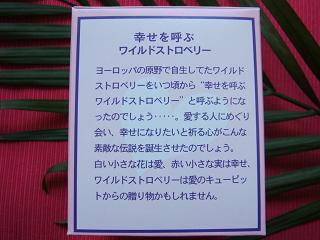 幸せを呼ぶ
ワイルドストロベリー
ヨーロッパの原野で自生してたワイルド
ストロベリーをいつ頃から“幸せを呼ぶ
ワイルドストロベリー”と呼ぶようにな
ったのでしょう‥‥‥。愛する人にめぐり
会い、幸せになりたいと祈る心がこんな
素敵な伝説を誕生させたのでしょう。
白い小さな花は愛、赤い小さな実は幸せ、
ワイルドストロベリーは愛のキューピッ
トからの贈り物かもしれません。